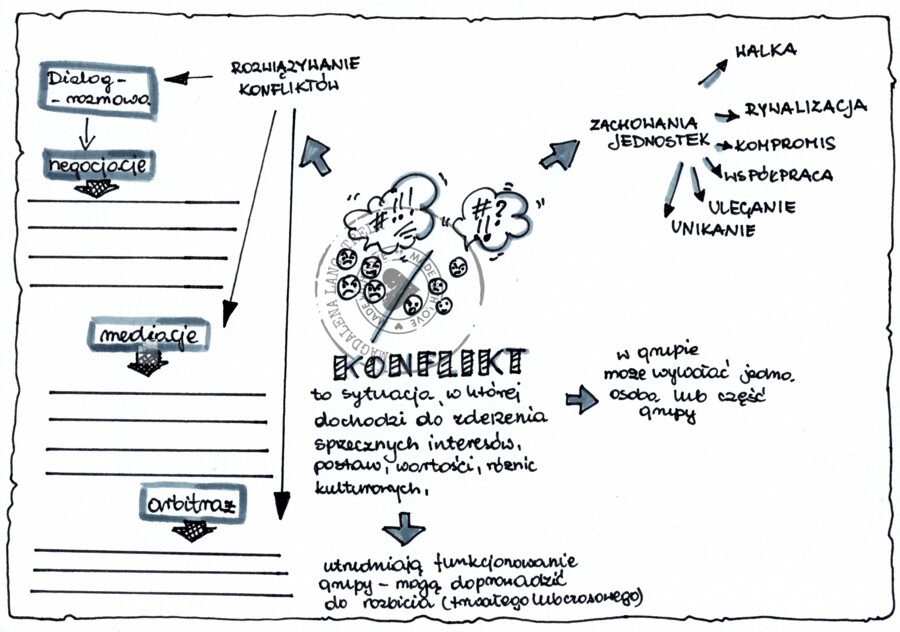 ROZWIĄZYWANIE
KONFLIKTÓW
Dialog -
- rozmowa
negocjacje
mediacje
arbitraż
ZACHOWANIA
JEDNOSTEK
WALKA
RYWALIZACJA
KOMPROMIS
WSPÓŁPRACA
ULEGANIE
UNIKANIE
#!!!
#?
!!
MAGDALENA LANG
MADE WITH LOVE
KONFLIKT
to sytuacja, w której
dochodzi do zderzenia
sprzecznych interesów,
postaw, wartości, różnic
kulturowych,
w grupie
może wywołać jedna
osoba lub część
grupy
utrudniają funkcjonowanie
grupy - mogą doprowadzić
do rozbicia (trwałego lub czasowego)